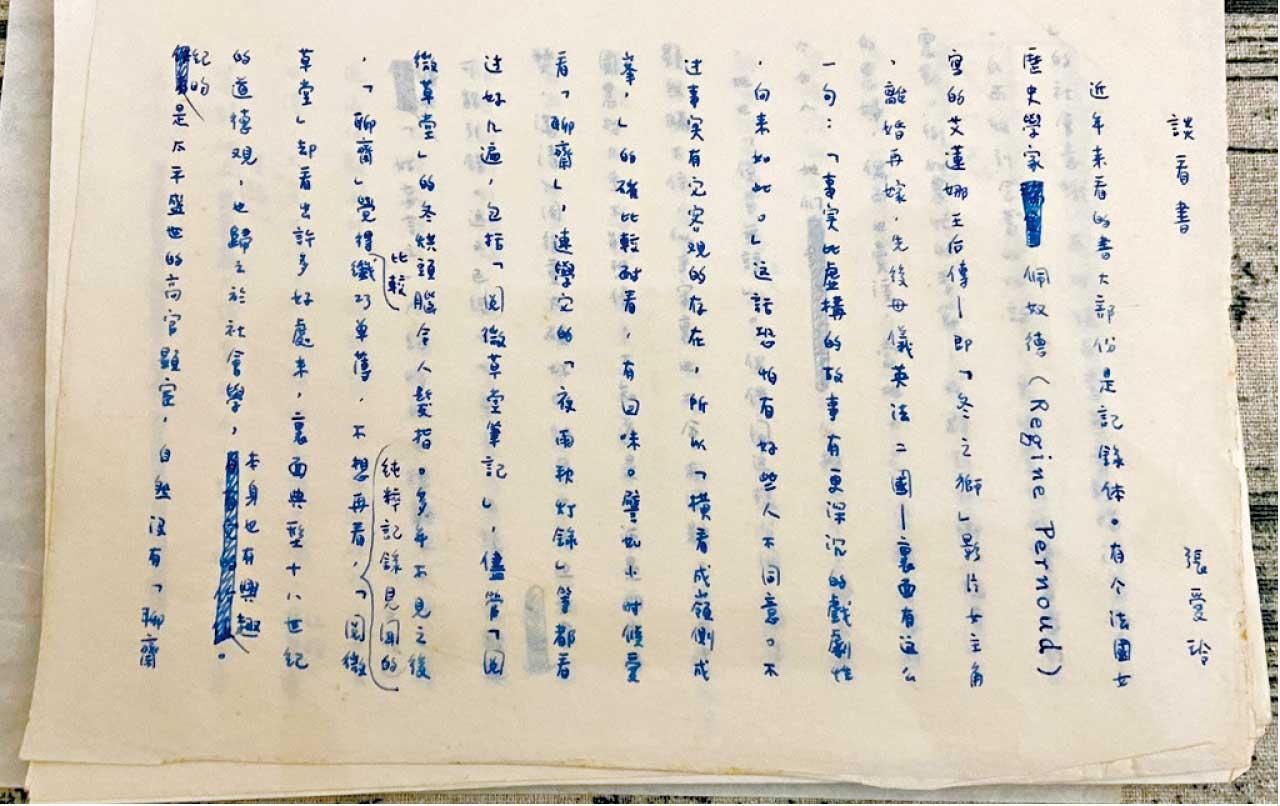 談看書
張愛玲
近年來看的書大部份是記錄体。有个法國女
歷史學家佩奴德（Regine Pernoud）
寫的艾蓮娜王后傳—即「冬之獅」影片女主角
，離婚再嫁，先後母儀英法二國—裏面有這么
一句：「事实比虛構的故事有更深沉的戲劇性
，向来如此。」這話恐怕有好些人不同意。不
过事实有它客观的存在，所以「橫看成嶺側成
峯，」的確比較耐看，有回味。譬如小时候愛
看「聊齋」，連學它的「夜雨秋灯錄」等都看
过好几遍，包括「阅微草堂筆記」，儘管「阅
微草堂」的冬烘頭腦令人髮指。多年不見之後
，「聊齋」覺得比較纖巧單薄，不想再看，純粹記錄見聞的「阅微
草堂」却看出許多好處来，裏面典型十八世紀
的道德观，也歸之於社會學，本身也有興趣。
紀昀是太平盛世的高官顯宦，自然沒有「聊齋